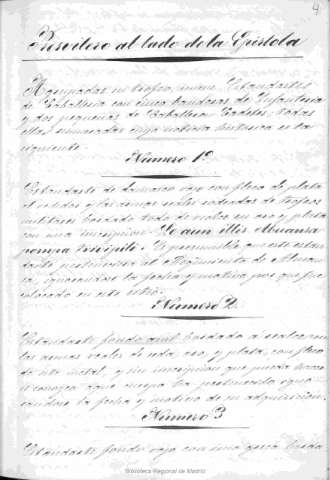 4
Presvitero al lado de la Epistola
Agrupadas en trofeo, nueve Estandartes
de Caballeria con cinco banderas de Infanteria
y dos pequeñas de Caballeros Cadetes, todas
ellas numeradas cuya noticia historica es la
siguiente.
Número 1º
Estandarte de Damasco rojo con fleco de plata
las armas reales rodeadas de trofeos
militares bordado todo de realce en oro y plata
con una inscripcion
Es presumible que este estan-
darte perteneciera al Regimiento de Alman-
sa, ignorandose la fecha y motivo por que fue
colocado en este sitio.
Número 2
Estandarte fondo azul bordado á realce con
las armas reales de seda, oro, y plata, con fleco
de este metal, y sin inscripcion que pueda
á que cuerpo ha pertenecido igno-
randose la fecha y motivo de su adquisicion.
Número 3
Estandarte fondo rojo con una
Biblioteca Regional de Madrid